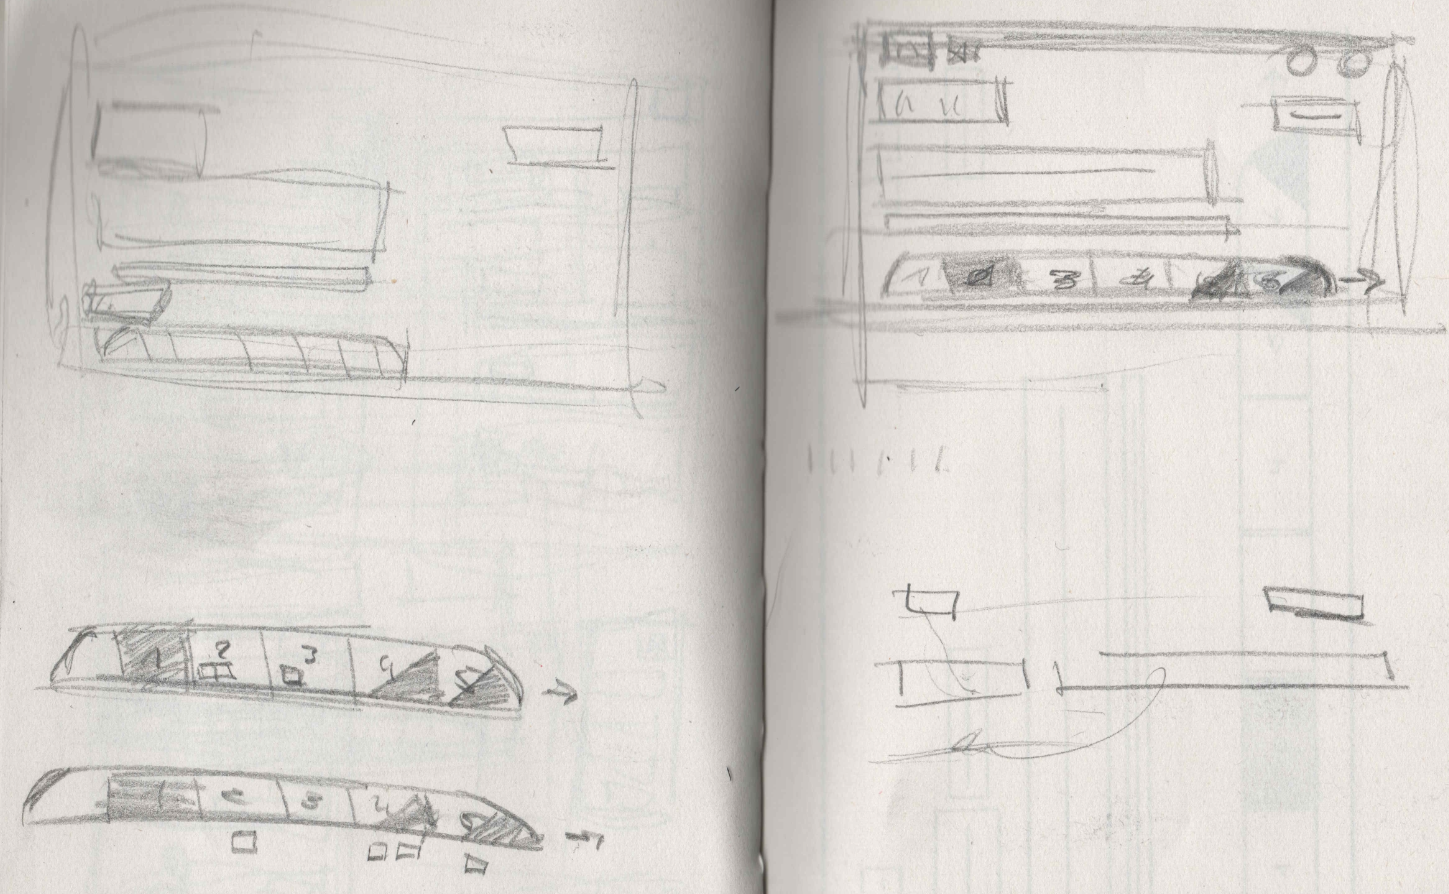 1 2 3 4 5 →
1 2 3 4 5 →
1 2 3 4 5 6 →